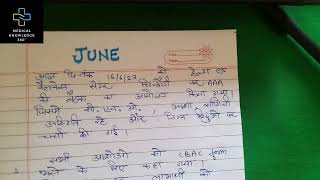 MEDICAL
KNOWLEDGE
360°
JUNE
आज दिनांक 16/6/23 को हेल्थ एंड
वैलनेस सेंटर पर AAA
की बैठक का आयोजन किया गया।
जिसमें सी.एच.ओ., आशा
उपस्थित रहे और निम्न बिंदुओं पर
चर्चा की गई।
सभी आशाओं को CBAC form
भरने के लिए कहा गया।
को